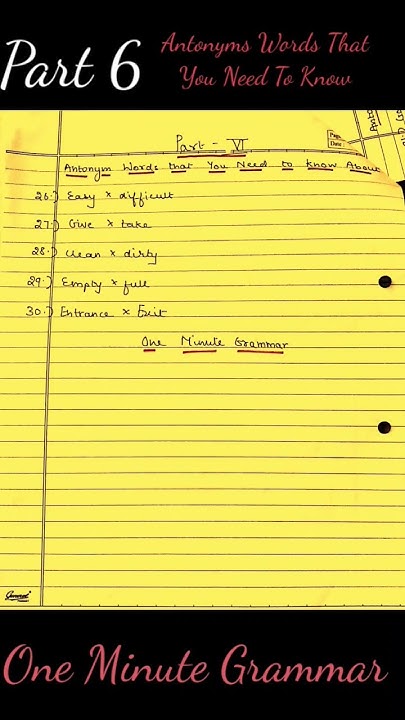 Part 6
Antonyms Words That
You Need To Know
Part - VI
Page
Date
Antonym Words that You Need to Know About
26.) Easy × difficult
27.) Give × take
28.) clean × dirty
29.) Empty × full
30.) Entrance × Exit
One Minute Grammar
One Minute Grammar